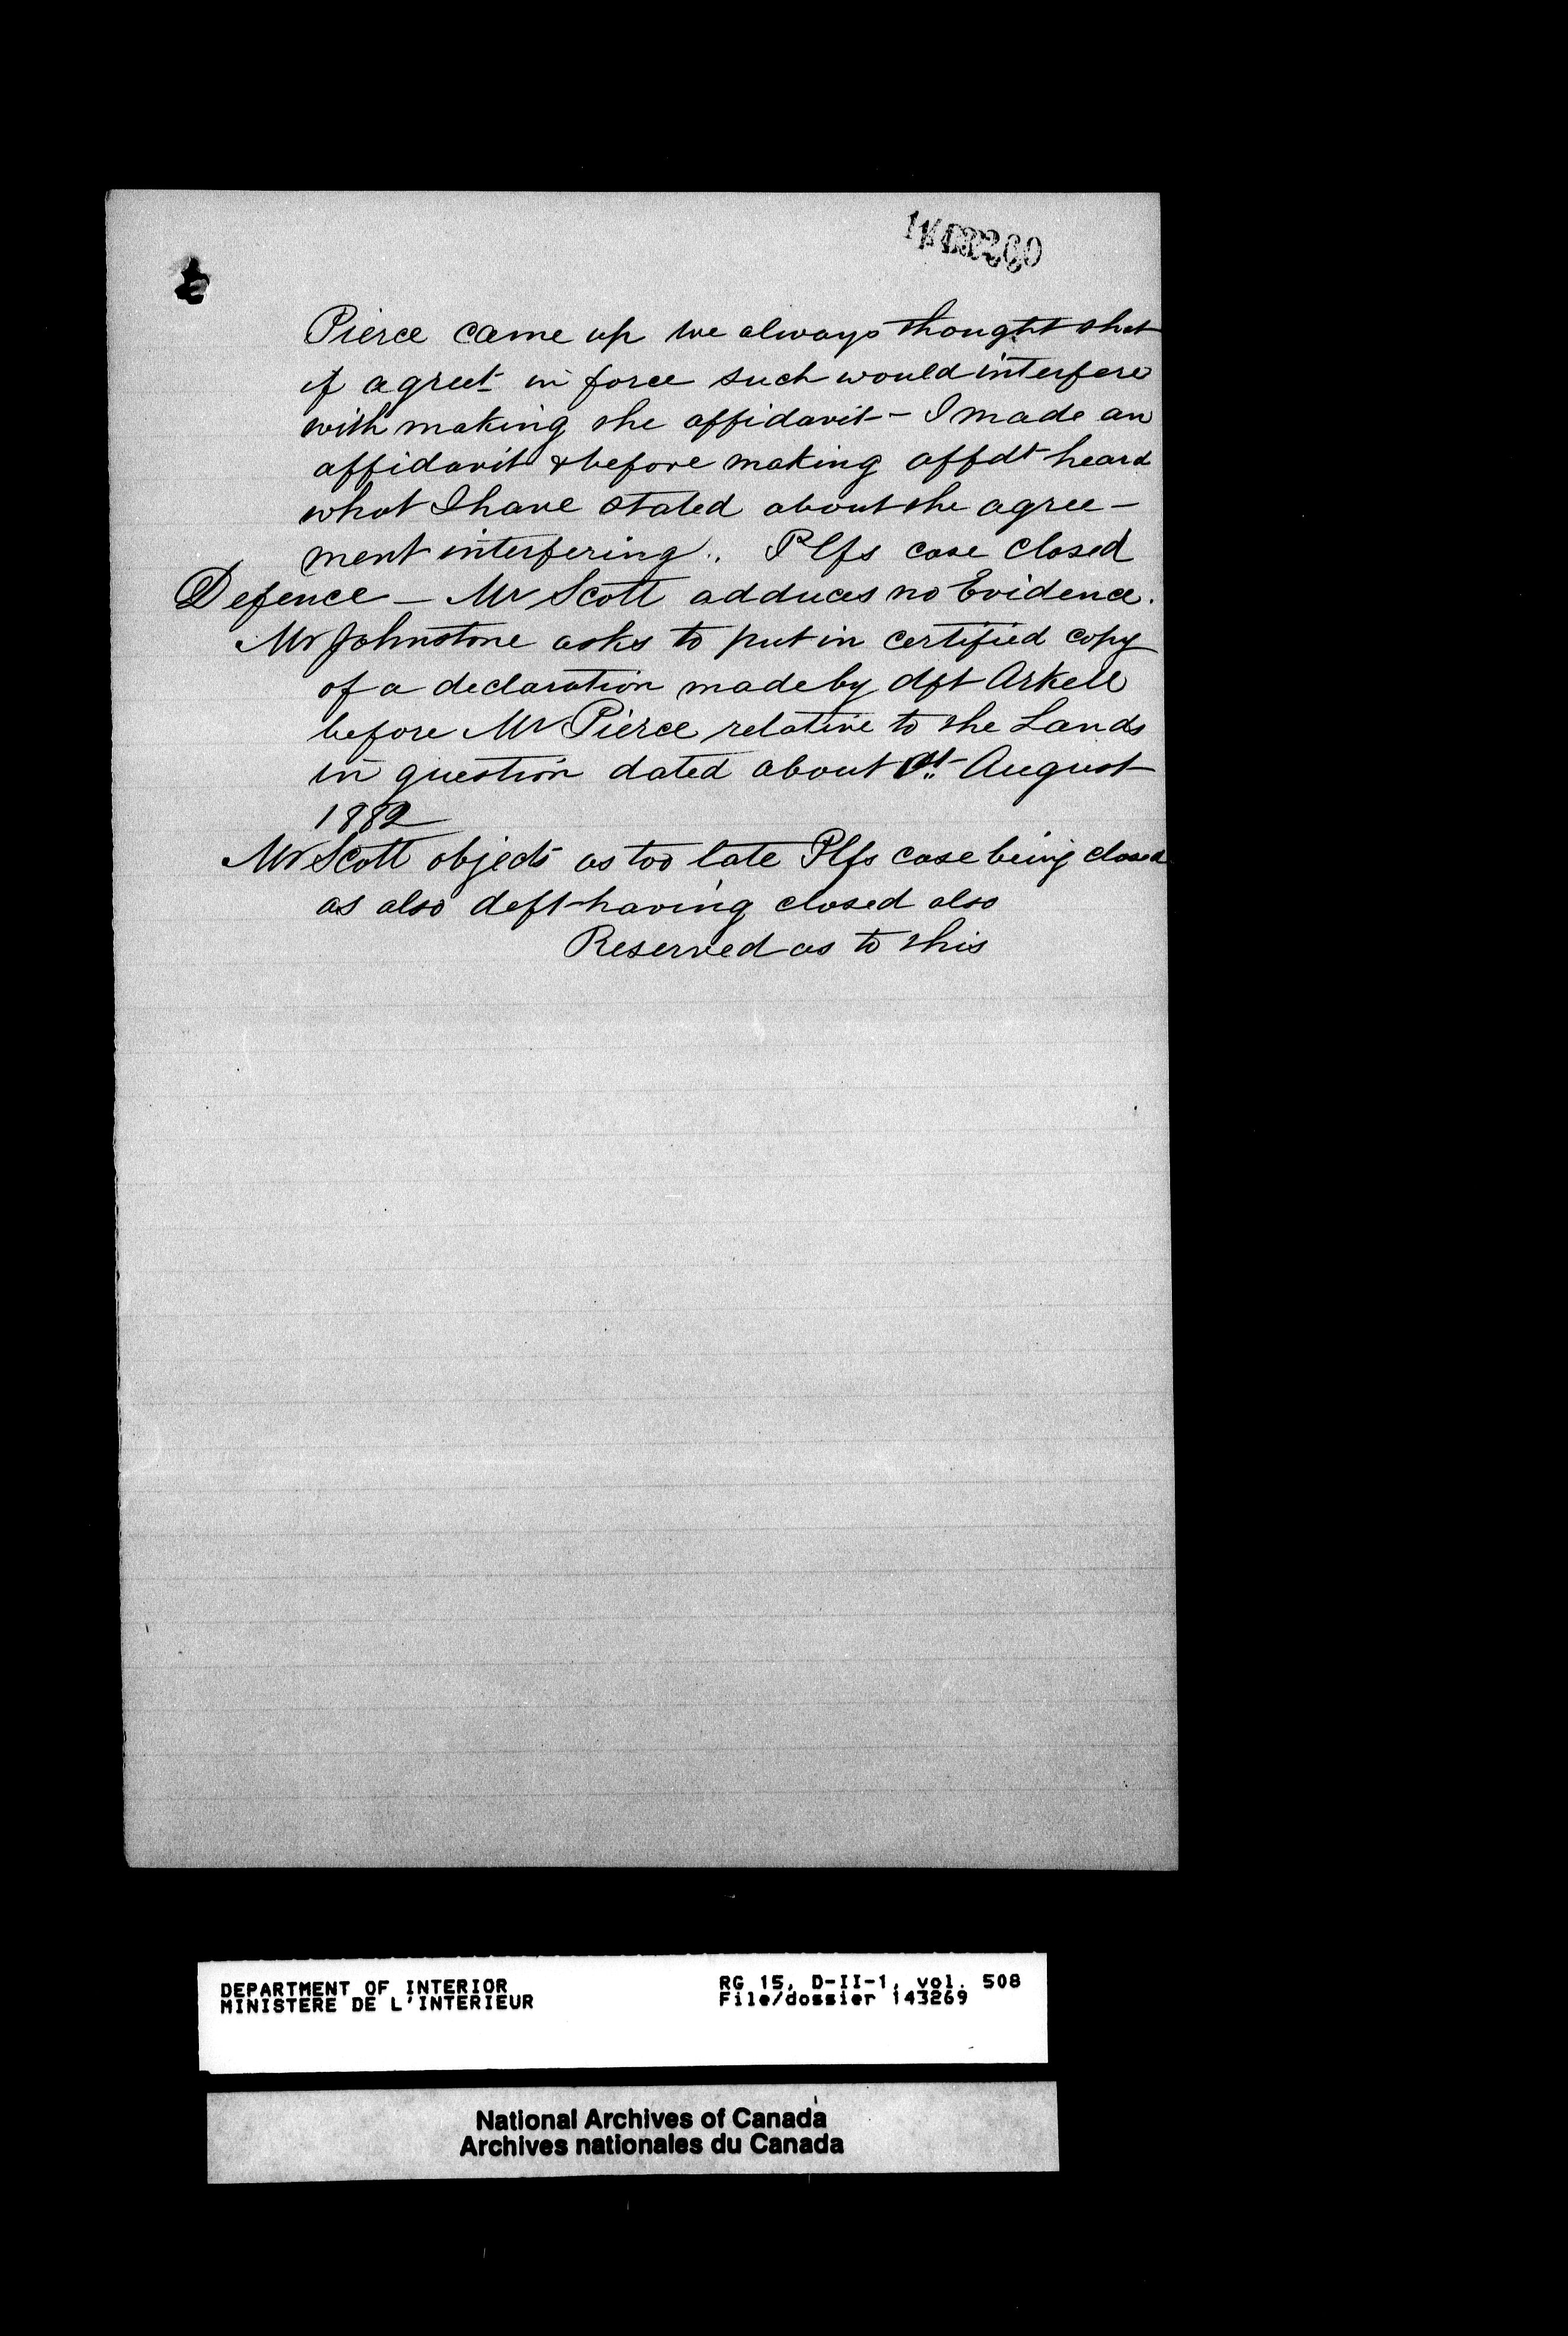 Pierce came up we always thought that
if agreet in force such would interfere
with making the affidavit - I made an
affidavit & before making affdt heard
what I have stated about the agree-
ment interfering. Plfs case closed
Defence - Mr Scott adduces no Evidence.
Mr Johnstone asks to put in certified copy
of a declaration made by dft Arkell
before Mr Pierce relative to the Lands
in question dated about August
1882
Mr Scott objects as too late Plfs case being closed
as also deft having closed also
Reserved as to this
DEPARTMENT OF INTERIOR RG 15, D-II-1, vol. 508
MINISTERE DE L'INTERIEUR File/dossier 143269
National Archives of Canada
Archives nationales du Canada